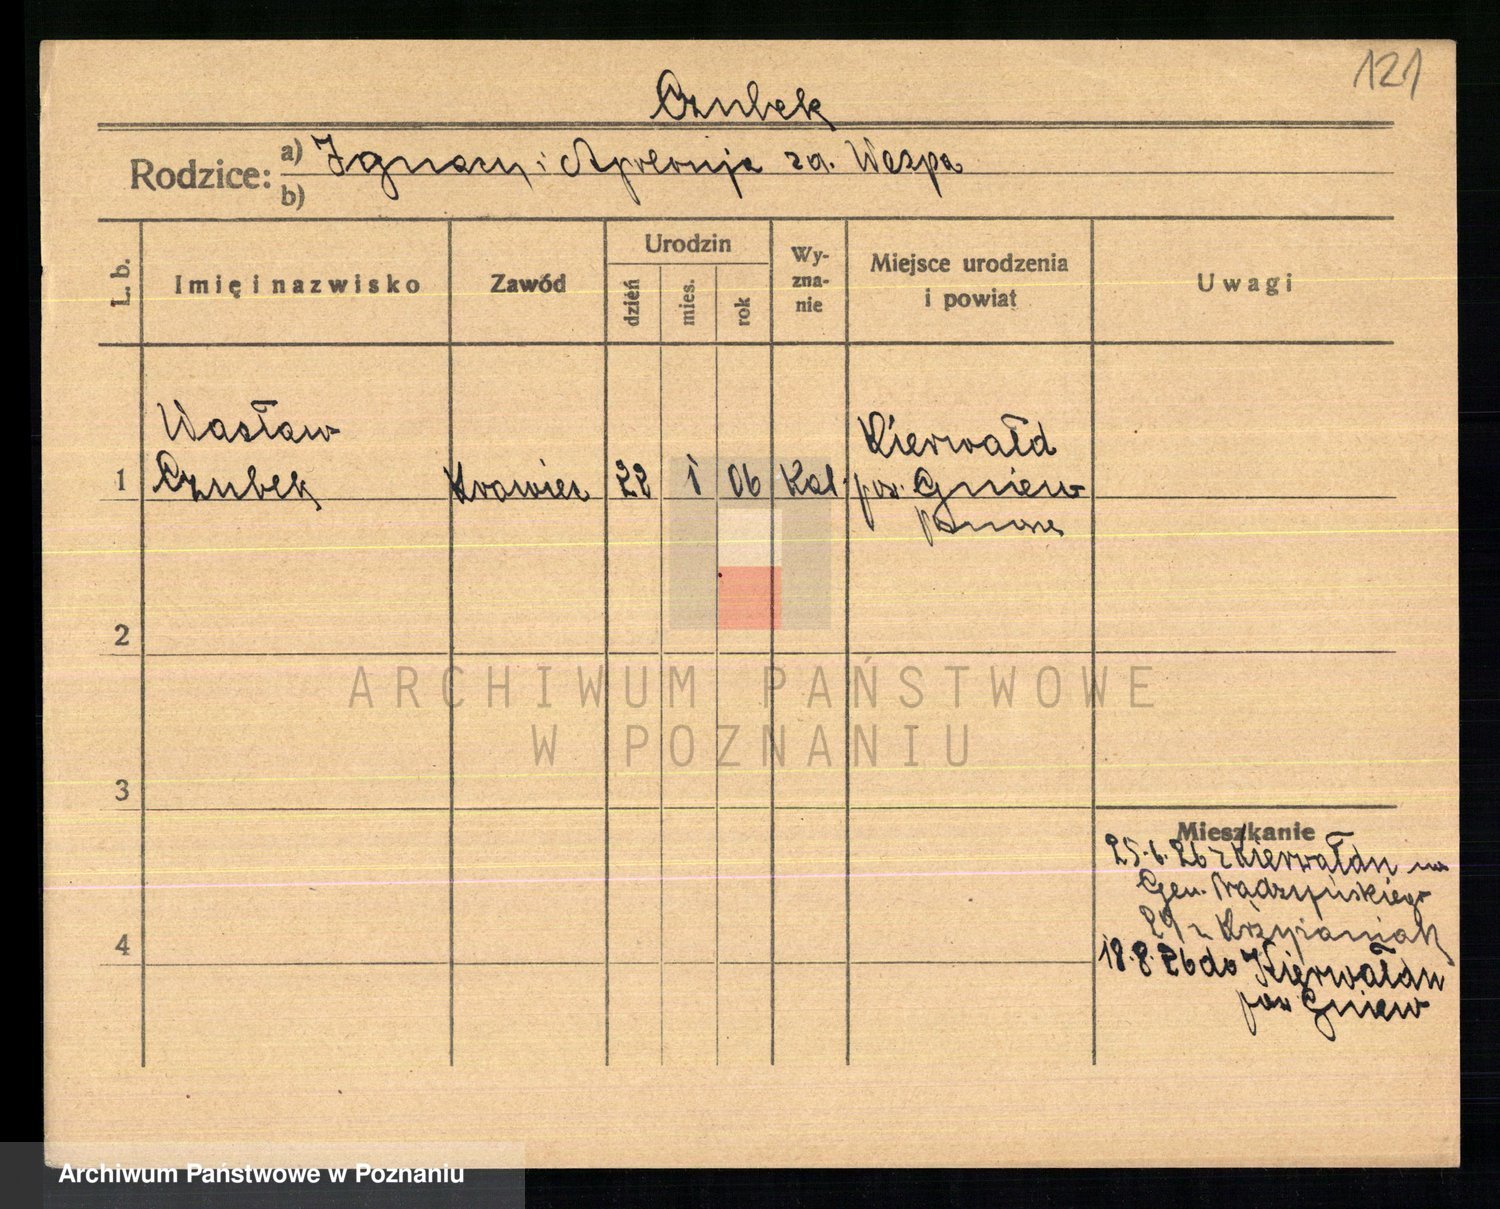 121
Czubek
Rodzice: a) Ignacy i Apolonja za. Wezpa
b)
L. b. Imię i nazwisko Zawód Urodzin dzień mies. rok Wy-zna-nie Miejsce urodzenia i powiat Uwagi
Wacław Kierwałd
1 Czubek Krawiec 22 1 06 Kat. pow. Gniew
2
ARCHIWUM PAŃSTWOWE
W POZNANIU
3
Mieszkanie
25.6.26 z Kierwałdu na
Gen. Prądzyńskiego
29 u Krzyżaniak
4
18.8.26 do Kierwałdu
pow Gniew
Archiwum Państwowe w Poznaniu